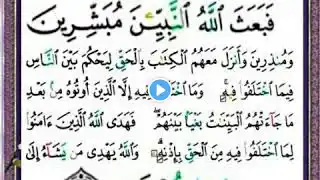 فَبَعَثَ ٱللَّهُ ٱلنَّبِيِّـۧنَ مُبَشِّرِينَ
وَمُنذِرِينَ وَأَنزَلَ مَعَهُمُ ٱلْكِتَٰبَ بِٱلْحَقِّ لِيَحْكُمَ بَيْنَ ٱلنَّاسِ
فِيمَا ٱخْتَلَفُوا۟ فِيهِ ۚ وَمَا ٱخْتَلَفَ فِيهِ إِلَّا ٱلَّذِينَ أُوتُوهُ مِنۢ بَعْدِ
مَا جَآءَتْهُمُ ٱلْبَيِّنَٰتُ بَغْيًۢا بَيْنَهُمْ ۖ فَهَدَى ٱللَّهُ ٱلَّذِينَ ءَامَنُوا۟
لِمَا ٱخْتَلَفُوا۟ فِيهِ مِنَ ٱلْحَقِّ بِإِذْنِهِۦ ۗ وَٱللَّهُ يَهْدِى مَن يَشَآءُ إِلَىٰ